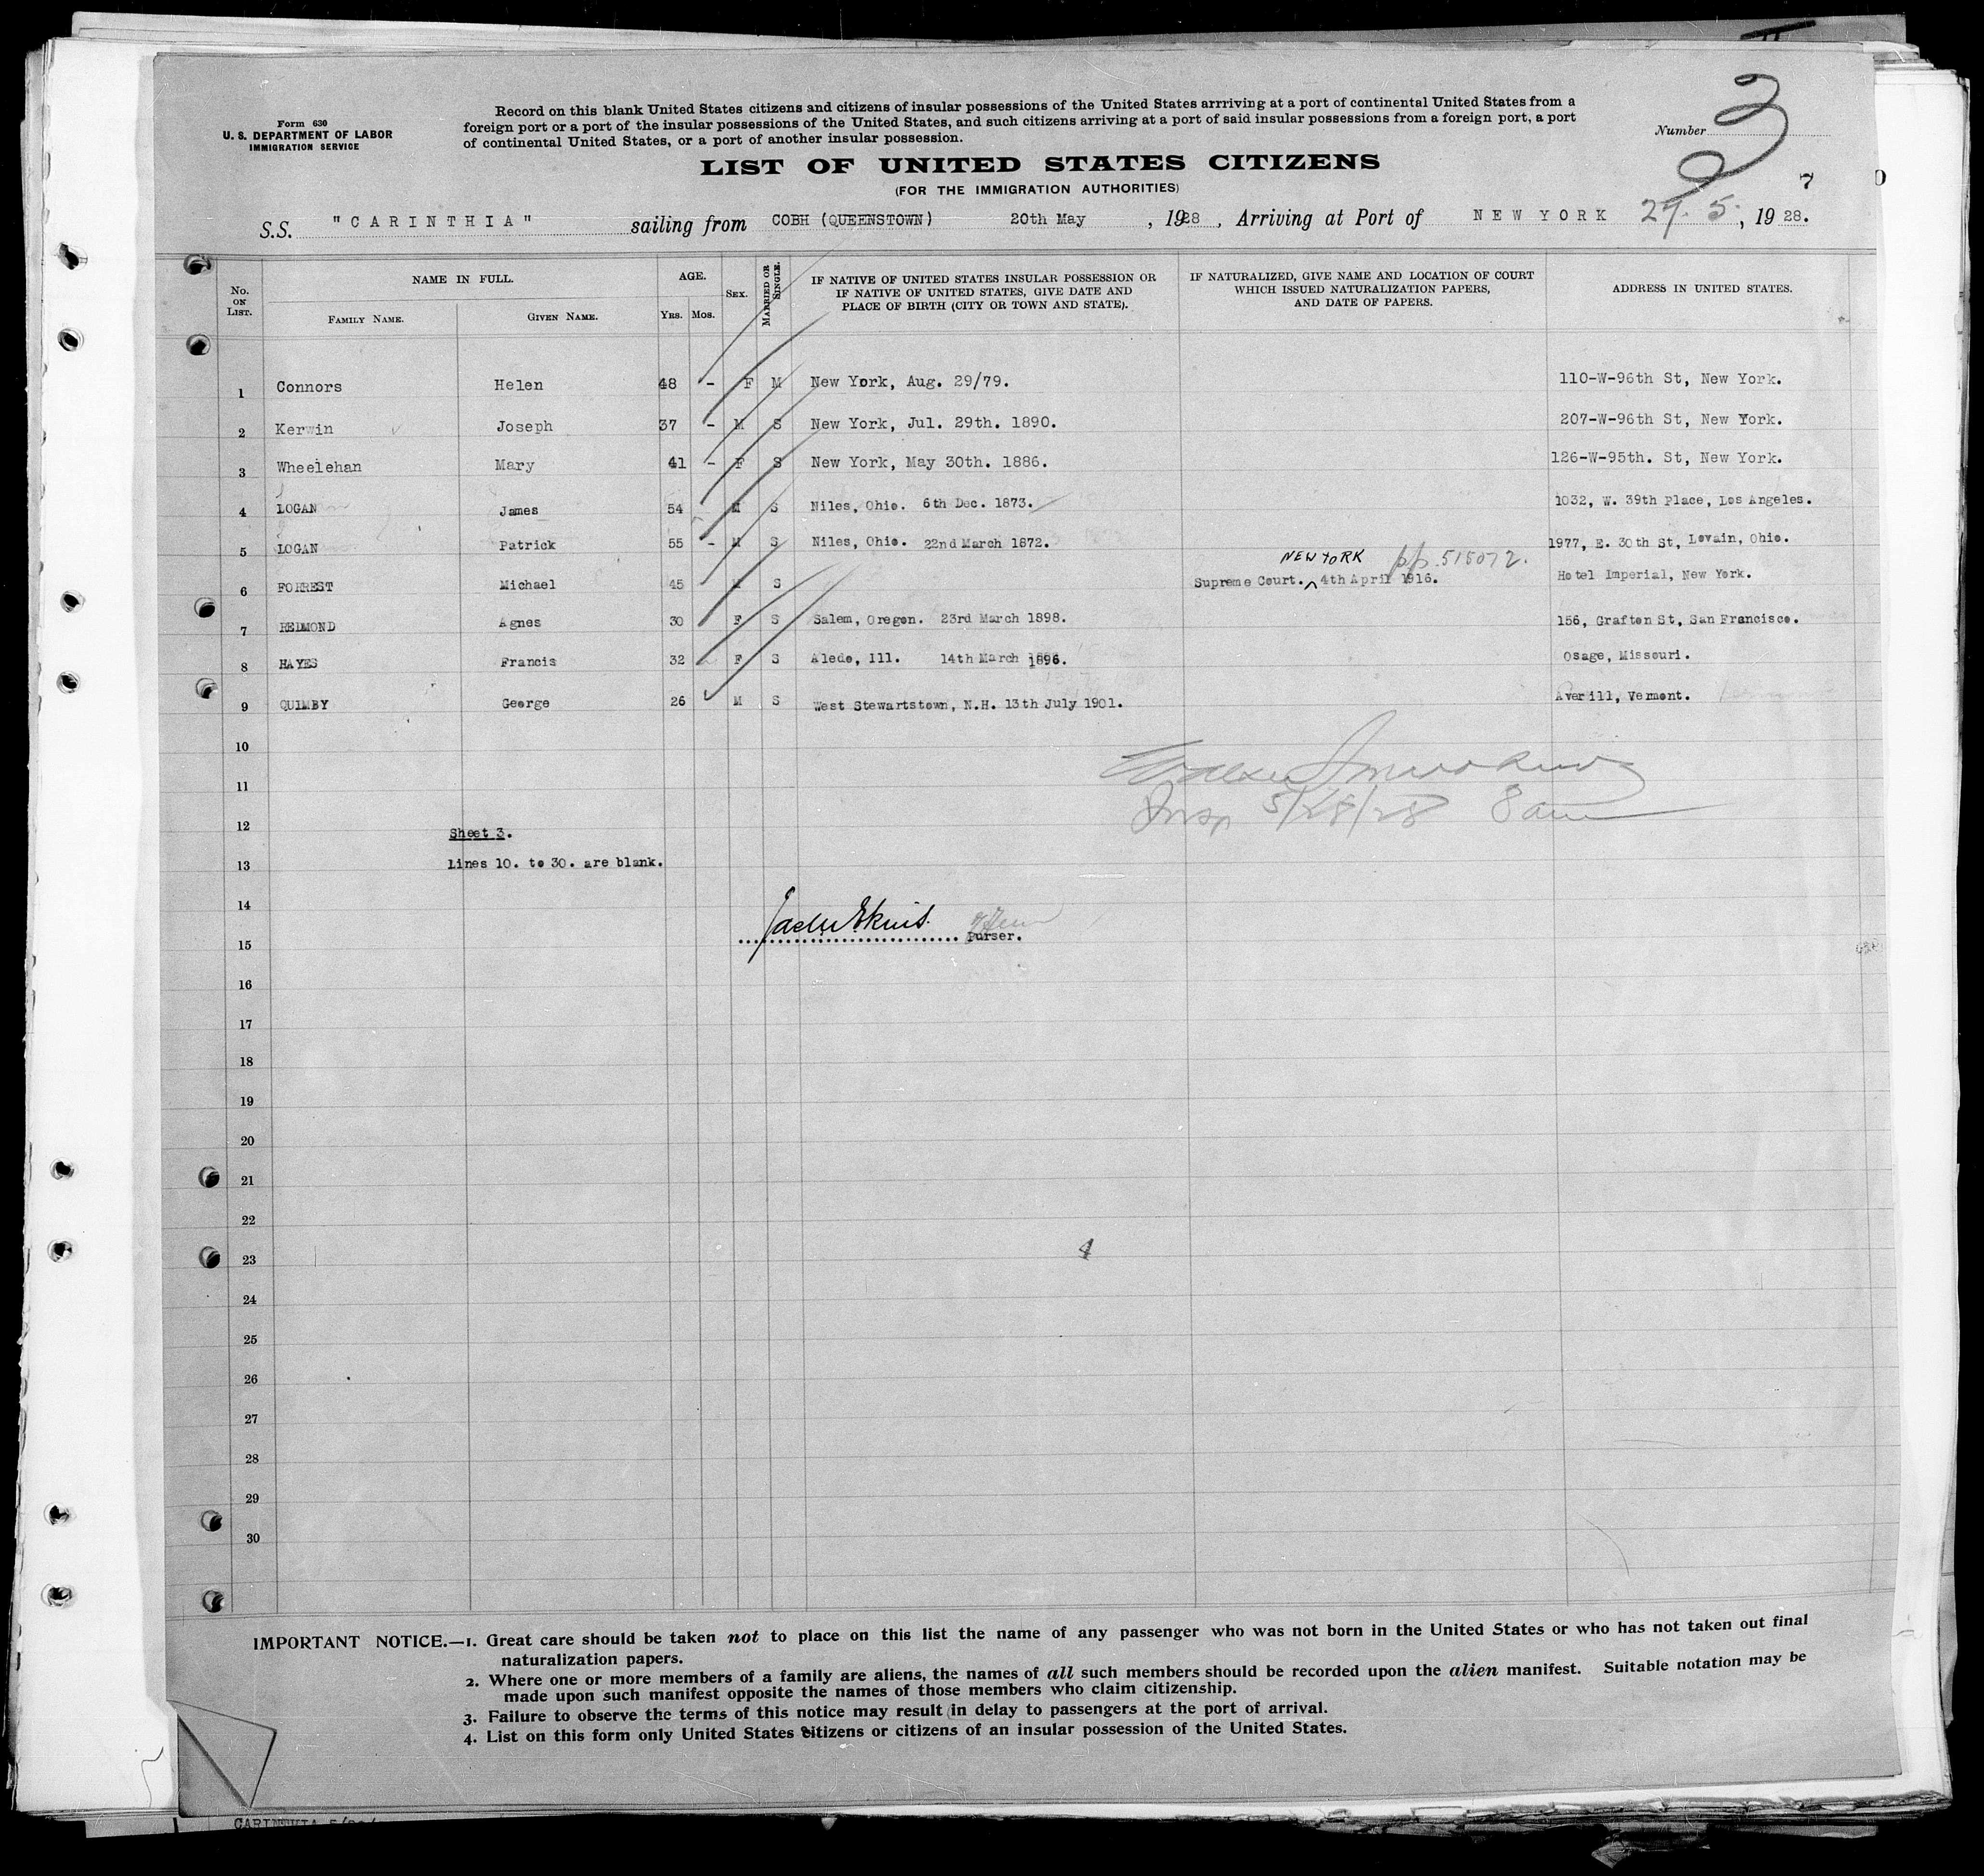 Form 630
U. S. DEPARTMENT OF LABOR
IMMIGRATION SERVICE
Record on this blank United States citizens and citizens of insular possessions of the United States arrriving at a port of continental United States from a
foreign port or a port of the insular possessions of the United States, and such citizens arriving at a port of said insular possessions from a foreign port, a port
of continental United States, or a port of another insular possession.
Number 3
LIST OF UNITED STATES CITIZENS
(FOR THE IMMIGRATION AUTHORITIES)
7
S.S. "CARINTHIA" sailing from COBH (QUEENSTOWN) 20th May, 1928, Arriving at Port of NEW YORK 27. 5., 1928.
No. ON LIST. NAME IN FULL. FAMILY NAME. GIVEN NAME. AGE. YRS. MOS. SEX. MARRIED OR SINGLE. IF NATIVE OF UNITED STATES INSULAR POSSESSION OR IF NATIVE OF UNITED STATES, GIVE DATE AND PLACE OF BIRTH (CITY OR TOWN AND STATE). IF NATURALIZED, GIVE NAME AND LOCATION OF COURT WHICH ISSUED NATURALIZATION PAPERS, AND DATE OF PAPERS. ADDRESS IN UNITED STATES.
1 Connors Helen 48 - F M New York, Aug. 29/79. 110-W-96th St, New York.
2 Kerwin Joseph 37 - M S New York, Jul. 29th. 1890. 207-W-96th St, New York.
3 Wheelehan Mary 41 - F S New York, May 30th. 1886. 126-W-95th. St, New York.
4 LOGAN James 54 M S Niles, Ohio. 6th Dec. 1873. 1032, W. 39th Place, Los Angeles.
5 LOGAN Patrick 55 - M S Niles, Ohio. 22nd March 1872. 1977, E. 30th St, Lovain, Ohio.
NEW YORK pp. 515072.
6 FORREST Michael 45 M S Supreme Court. 4th April 1916. Hotel Imperial, New York.
7 REDMOND Agnes 30 F S Salem, Oregon. 23rd March 1898. 156, Grafton St, San Francisco.
8 HAYES Francis 32 F S Aledo, Ill. 14th March 1896. Osage, Missouri.
9 QUIMBY George 26 M S West Stewartstown, N.H. 13th July 1901. Averill, Vermont.
10
11
Insp 5/28/28 8 am
12
Sheet 3.
13
Lines 10. to 30. are blank.
14
15
Purser.
16
17
18
19
20
21
22
23
4
24
25
26
27
28
29
30
IMPORTANT NOTICE.—1. Great care should be taken not to place on this list the name of any passenger who was not born in the United States or who has not taken out final
naturalization papers.
2. Where one or more members of a family are aliens, the names of all such members should be recorded upon the alien manifest. Suitable notation may be
made upon such manifest opposite the names of those members who claim citizenship.
3. Failure to observe the terms of this notice may result in delay to passengers at the port of arrival.
4. List on this form only United States citizens or citizens of an insular possession of the United States.